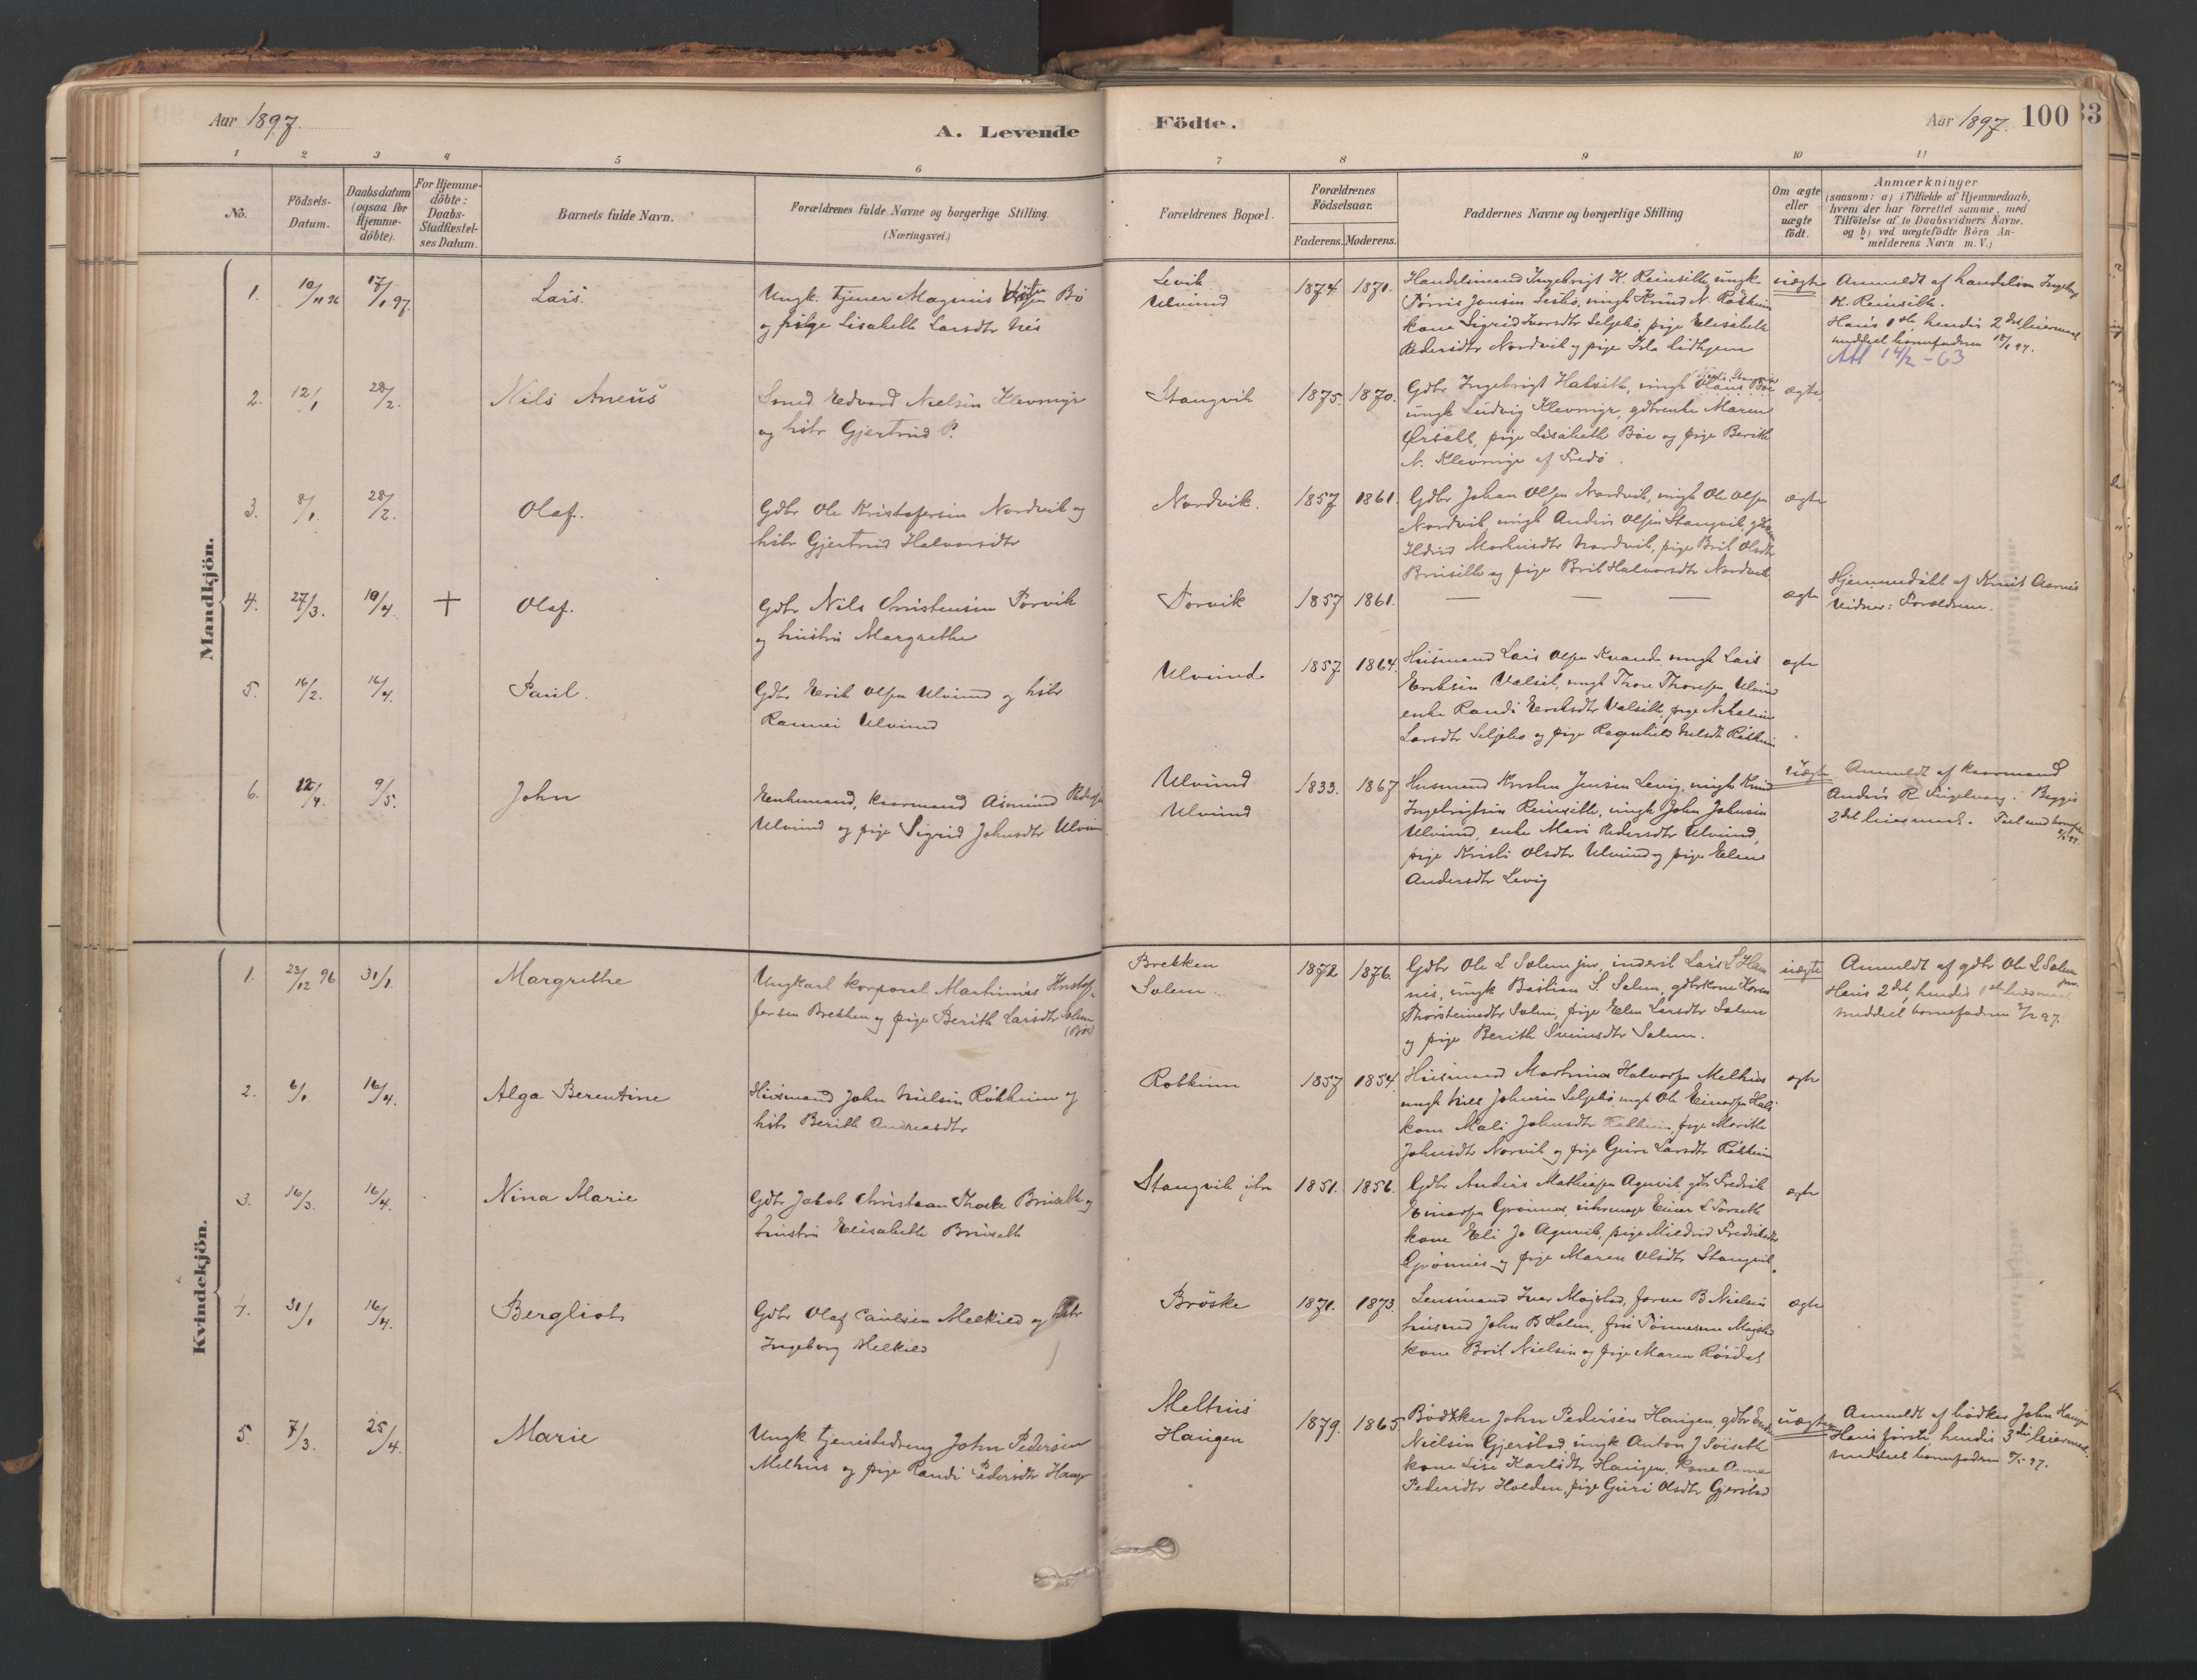 Aar 1897.
A. Levende
Födte.
Aar 1897. 100
33
1 2 3 4 5 6 7 8 9 10 11
No.
Födsels-Datum.
Daabsdatum (ogsaa for Hjemme-döbte).
For Hjemme-döbte: Daabs-Stadfæstel-ses Datum.
Barnets fulde Navn.
Forældrenes fulde Navne og borgerlige Stilling.
(Næringsvei.)
Forældrenes Bopæl.
Forældrenes Födselsaar.
Faderens. Moderens.
Faddernes Navne og borgerlige Stilling
Om ægte eller uægte födt.
Anmærkninger
(saasom: a) i Tilfælde af Hjemmedaab,
hvem der har forrettet samme, med
Tilföielse af to Daabsvidners Navne.
og b) ved uægtefödte Börn An-
melderens Navn m. V.)
Mandkjön.
1. 10/11 96 17/1 97. Lars.
Ungk. tjener Magnus Bö
og pige Lisabeth Larsdtr Næs
Levik
Ulvund
1874. 1871.
Handelsmand Ingebrigt K. Reinsilh, ungk
kone Sigrid Iversdtr Seljebö, pige Elisabeth
Pedersdtr Nordvik og pige
uægte
Anmeldt af handelsm Ingebrigt
K. Reinsilh.
Hans 1ste, hendes 2det leiermaal
meddeel barnefadren 18/1 97.
14/2-63
2. 12/1 28/2. Nils Aneus
Smed Edvard Nielsen Klevmyr
og hstr Gjertrud P.
Stangvik
1875. 1870.
Gdbr Ingebrigt Halseth, ungk Olaus Böe
ungk Ludvig Klevmyr, gdbrenke Maren
pige Lisabeth Böe og pige Berith
N. Klevmyr af Fredö.
ægte
3. 8/1. 28/2. Olaf.
Gdbr Ole Kristofersen Nordvik og
hstr Gjertrud Halvorsdtr
Nordvik.
1857 1861.
Gdbr Johan Olsen Nordvik, ungk Ole Olsen
Nordvik, ungk Anders Olsen Stangvik,
Markusdtr Nordvik, pige Brit Olsdtr
Bruseth og pige Brit Halvorsdtr Nordvik
ægte
4. 27/3. 19/4. + Olaf.
Gdbr Nils Christensen Torvik
og hustru Margrethe
Torvik
1857 1861.
— — —
ægte
Hjemmedöbt af Knut Aarnes
Vidner: Forældrene.
5. 16/2. 16/4. Paul.
Gdbr Erik Olsen Ulvund og hstr
Rannei Ulvund
Ulvund.
1857 1864.
Husmand Lars Olsen Kvande, ungk Lars
Eriksen Valset, ungk Thore Thoresen Ulvund
enke Randi Eriksdtr Valseth, pige
Larsdtr Seljebö og pige Ragnhild Nilsdtr Rötheim
ægte
6. 12/4. 9/5. John
Enkemand, kaarmand Asmund Pedersen
Ulvund og pige Sigrid Johnsdtr Ulvund
Ulvund
Ulvund
1833. 1867
Husmand Jensen Levig, ungk Knud
Ingebrigtsen Reinsilh, ungk John Johnsen
Ulvund, enke Mari Pedersdtr Ulvund,
pige Kristi Olsdtr Ulvund og pige Eline
Andersdtr Levig
uægte
Anmeldt af kaarmand
Anders R. Begges
2det leiermaal.
Kvindekjön.
1. 23/12 96 31/1. Margrethe
Ungkarl korporal Martinus Kristof-
fersen Brekken og pige Berith Larsdtr Solem
(Böe)
Brekken
Solem.
1872 1876.
Gdbr Ole L Solem jnr, inderst Lars L Ham
nes, ungk Bastian S. Solem, gdbrkone Karen
Thorsteinsdtr Solem, pige Elen Larsdtr Solem
og pige Berith Sveinsdtr Solem.
uægte
Anmeldt af gdbr Ole L Solem
jnr.
Hans 2det, hendes 1ste leiermaal
meddeel barnefadren
2. 6/1. 16/4. Alga Berentine
Husmand John Nielsen Rötheim og
hstr Berith Andreasdtr
Rotheim
1857 1854.
Husmand Martinus Halvorsen Melhus
ungk Nils Johnsen Seljebö, ungk Ole Einarsen
kone Mali Johnsdtr pige Marithe
Johnsdtr Norvik og pige Guri Larsdtr Rötheim
ægte
3. 16/3. 16/4. Nina Marie
Gdbr Jakob Christian Bruseth og
hustru Elisabeth Bruseth
Stangvik
1851. 1856.
Gdbr Anders Mathiasen Aguvik gdbr Fredrik
Einarsen Grönnes, Einar L Torseth
kone Eli J. Aguvik, pige Mildrid Fredriksdtr
Grönnes og pige Maren Olsdtr Stangvik.
ægte
4. 31/1 16/4. Bergliot
Gdbr Olaf Paulsen Melkild og hstr
Ingeborg Melkild
Bröske
1871. 1873.
Lensmand Iver Majstad, farver B Nielsen
husmd John B Holm, fru Majstad
kone Brit Nielsen og pige Maren Rösdal
ægte
5. 7/3. 25/4. Marie
Ungk tjenestedreng John Pedersen
Melhus og pige Randi Pedersdtr Haugen
Melhus
Haugen
1879. 1865.
Bödker John Pedersen Haugen, gdbr
Nielsen Gjerstad, ungk Anton J Soiseth
kone Lise Karlsdtr Haugen, kone Anne
Pedersdtr Holden, pige Guri Olsdtr Gjerstad
uægte
Anmeldt af bödker John Haugen
Hans förste hendes 3die leiermaal.
meddeel barnefadren